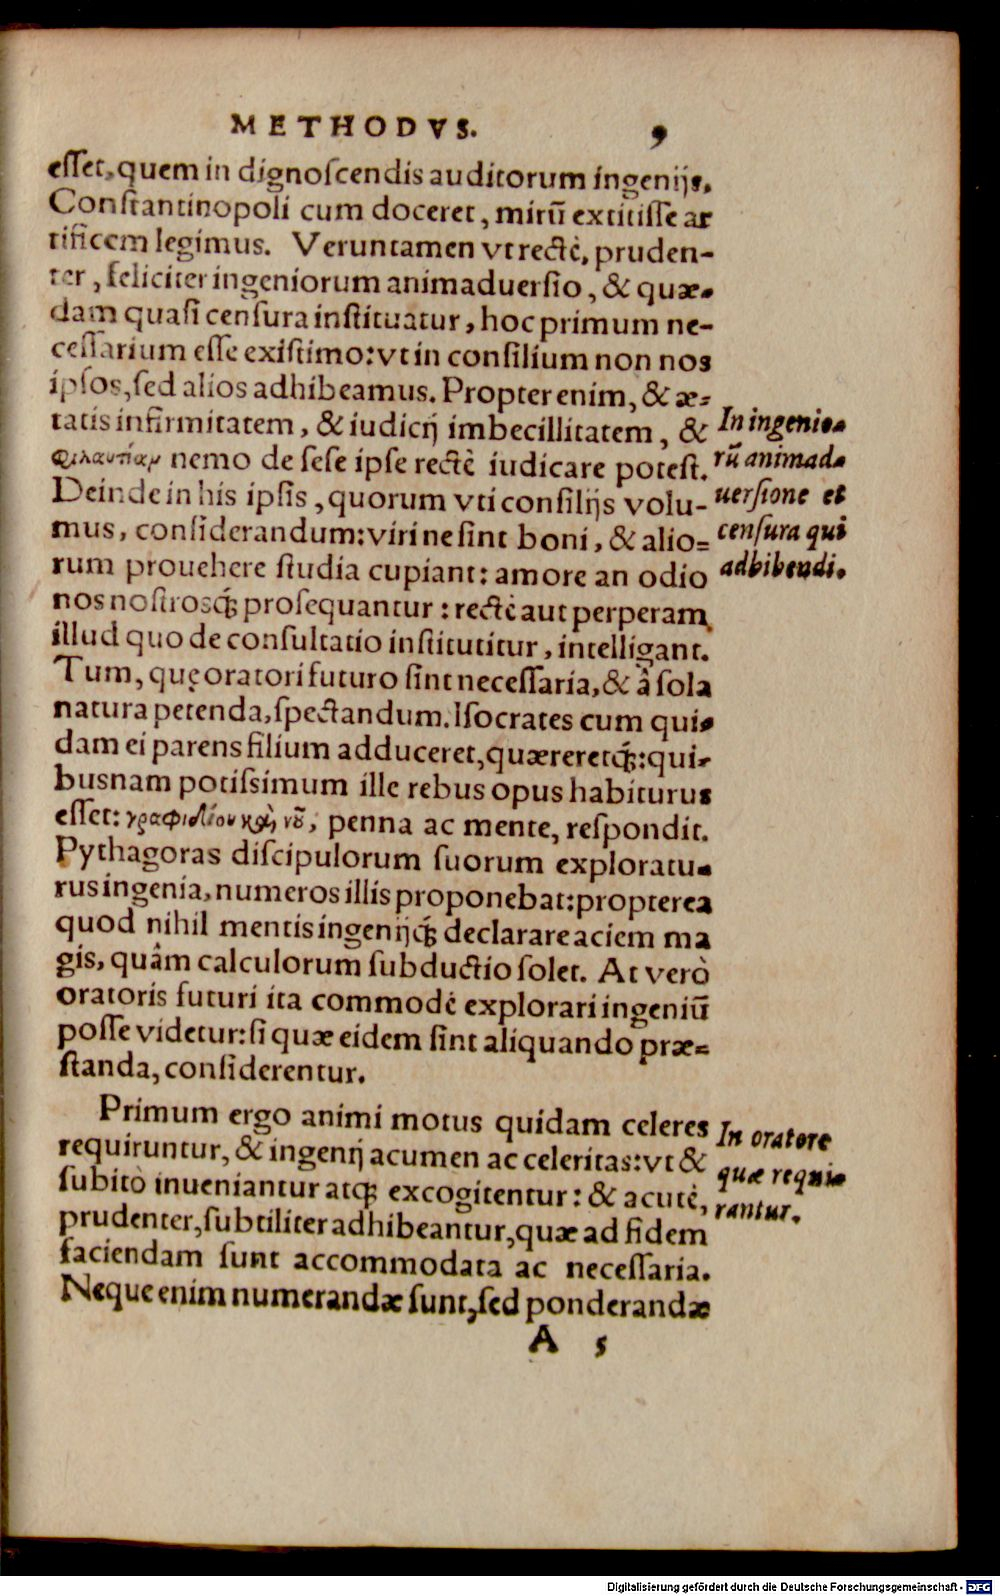 METHODVS. 9
eſſet, quem in dignoſcendis auditorum ingenijs,
Conſtantinopoli cum doceret, mirũ extitiſſe ar
tificem legimus. Veruntamen vt rectè, pruden-
ter, feliciter ingeniorum animaduerſio, & quæ-
dam quaſi cenſura inſtituatur, hoc primum ne-
ceſſarium eſſe exiſtimo: vt in conſilium non nos
ipſos, ſed alios adhibeamus. Propter enim, & æ-
tatis infirmitatem, & iudicij imbecillitatem, &
φιλαυτίαν nemo de ſeſe ipſe rectè iudicare poteſt.
Deinde in his ipſis, quorum vti conſilijs volu-
mus, conſiderandum: viri ne ſint boni, & alio-
rum prouehere ſtudia cupiant: amore an odio
nos noſtrosq́; proſequantur: rectè aut perperam
illud quo de conſultatio inſtitutitur, intelligant.
Tum, quę oratori futuro ſint neceſſaria, & â ſola
natura petenda, ſpectandum. Iſocrates cum qui-
dam ei parens filium adduceret, quæreretq́;: qui-
busnam potiſsimum ille rebus opus habiturus
eſſet: γραφιδίου καὶ νοῦ, penna ac mente, reſpondit.
Pythagoras diſcipulorum ſuorum exploratu-
rus ingenia, numeros illis proponebat: propterea
quod nihil mentis ingenijq́; declarare aciem ma
gis, quâm calculorum ſubductio ſolet. At verò
oratoris futuri ita commodè explorari ingeniũ
poſſe videtur: ſi quæ eidem ſint aliquando præ-
ſtanda, conſiderentur.
Primum ergo animi motus quidam celeres
requiruntur, & ingenij acumen ac celeritas: vt &
ſubitò inueniantur atq; excogitentur: & acutè,
prudenter, ſubtiliter adhibeantur, quæ ad fidem
faciendam ſunt accommodata ac neceſſaria.
Neque enim numerandæ ſunt, ſed ponderandæ
A 5
In ingenio-
rũ animad-
uerſione et
cenſura qui
adhibendi.
In oratore
quæ requi-
rantur.
Digitalisierung gefördert durch die Deutsche Forschungsgemeinschaft - DFG